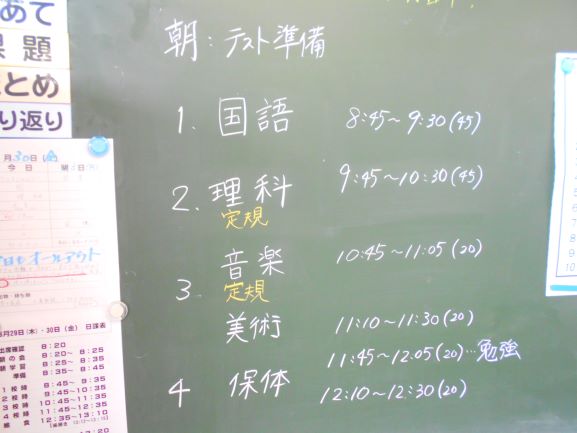 めて
課題
まとめ
り返り
朝:テスト準備
1. 国語 8:45〜9:30(45)
2. 理科 9:45〜10:30(45)
定規
音楽 10:45〜11:05(20)
3. 定規
美術 11:10〜11:30(20)
11:45〜12:05(20)…勉強
4 保体 12:10〜12:30(20)
月30日(金)
今日
オールアウト
月29日(木)・30日(金) 日課表
出席確認 8:20
朝の会 8:20〜 8:25
朝学習 8:25〜 8:35
準備 8:35〜 8:45
1校時 8:45〜 9:35
2校時 9:45〜10:35
3校時 10:45〜11:35
4校時 11:45〜12:35
給食 12:35〜13:10